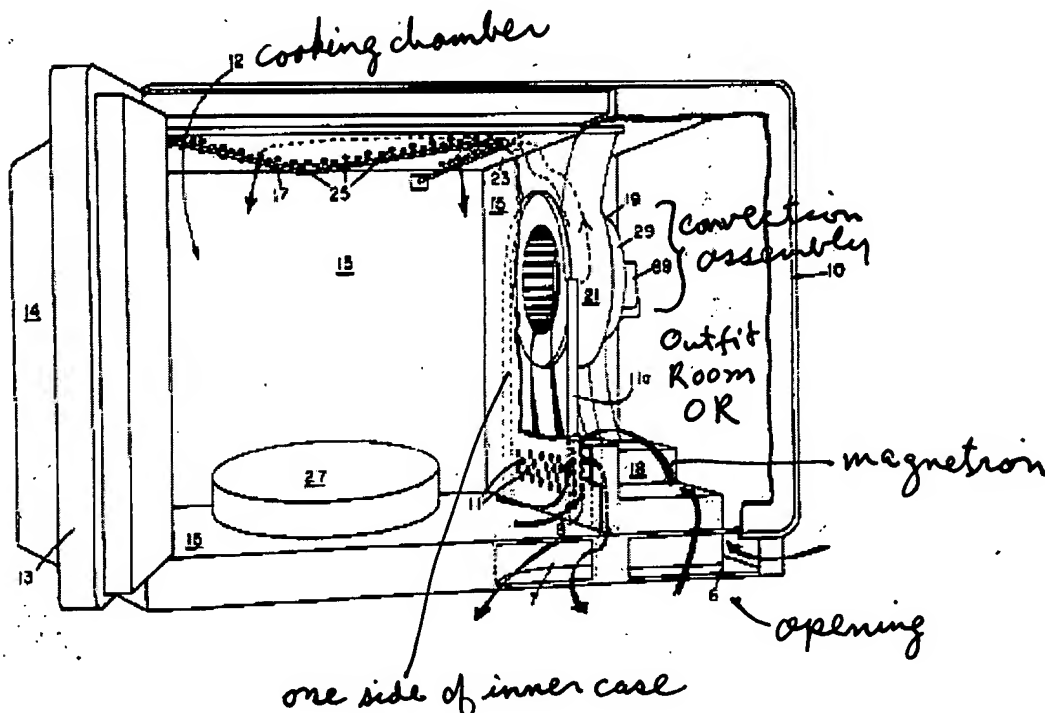 12 cooking chamber
17
25
23
15
19
29
89
convection
assembly
10
14
15
21
Outfit
Room
OR
11a
magnetron
27
18
11
8
15
13
7
6
opening
one side of inner case